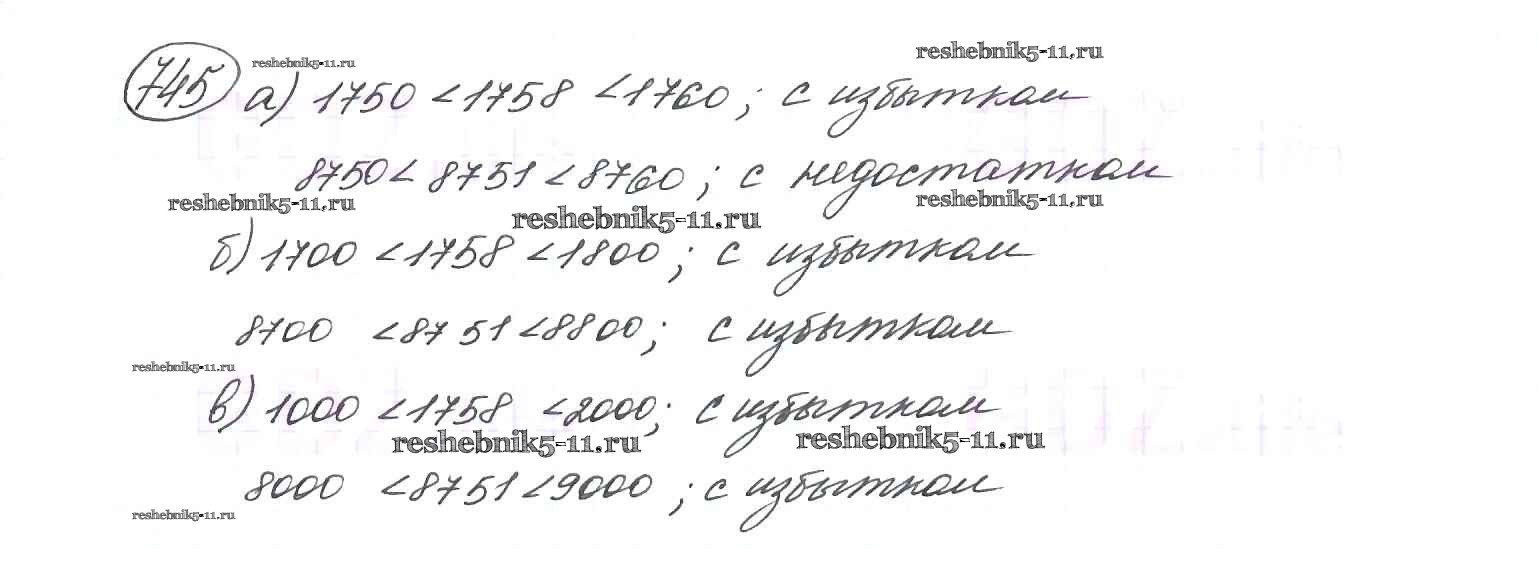 reshebnik5-11.ru
745 reshebnik5-11.ru
а) 1750 < 1758 < 1760; с избытком
8750 < 8751 < 8760; с недостатком
reshebnik5-11.ru reshebnik5-11.ru reshebnik5-11.ru
б) 1700 < 1758 < 1800; с избытком
8700 < 8751 < 8800; с избытком
reshebnik5-11.ru
в) 1000 < 1758 < 2000; с избытком
reshebnik5-11.ru reshebnik5-11.ru
8000 < 8751 < 9000; с избытком
reshebnik5-11.ru